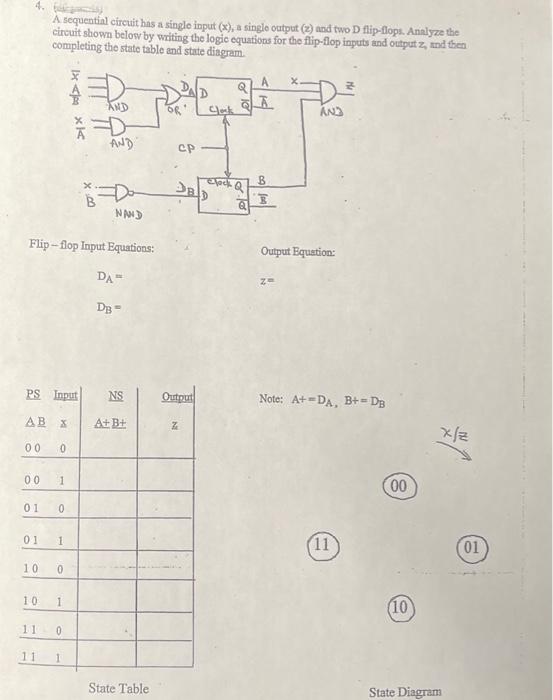 4.
A sequential circuit has a single input (x), a single output (z) and two D flip-flops. Analyze the
circuit shown below by writing the logic equations for the flip-flop inputs and output z, and then
completing the state table and state diagram.
x̅
A
B̅
AND
x
A̅
AND
OR
DA
D
Q
Q̅
Clock
A
A̅
x
AND
z
CP
x
B
NAND
DB
D
Clock
Q
Q̅
B
B̅
Flip – flop Input Equations:
Output Equation:
DA =
z =
DB =
PS Input NS Output
Note: A+ = DA, B+ = DB
A B x A+ B+ z
x/z
0 0 0
0 0 1
00
0 1 0
0 1 1
11
01
1 0 0
1 0 1
10
1 1 0
1 1 1
State Table
State Diagram